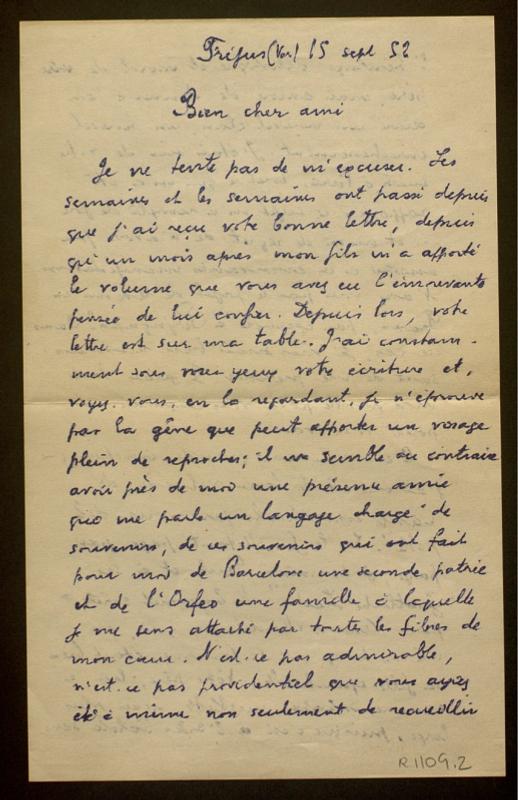 Fréjus (Var) 15 sept 52
Bien cher ami
Je ne tente pas de m'excuser. Les
semaines et les semaines ont passé depuis
que j'ai reçu votre bonne lettre, depuis
qu'un mois après mon fils m'a apporté
le volume que vous avez eu l'émouvante
pensée de lui confier. Depuis lors, votre
lettre est sur ma table. J'ai constam-
ment sous mes yeux votre écriture et,
voyez-vous, en la regardant, je n'éprouve
pas la gêne que peut apporter un visage
plein de reproches; il me semble au contraire
avoir près de moi une présence amie
qui me parle un langage chargé de
souvenirs, de ces souvenirs qui ont fait
pour moi de Barcelone une seconde patrie
et de l'Orfeo une famille à laquelle
je me sens attaché par toutes les fibres de
mon cœur. N'est-ce pas admirable,
n'est-ce pas providentiel que vous ayez
été à même non seulement de recueillir
R1109.2